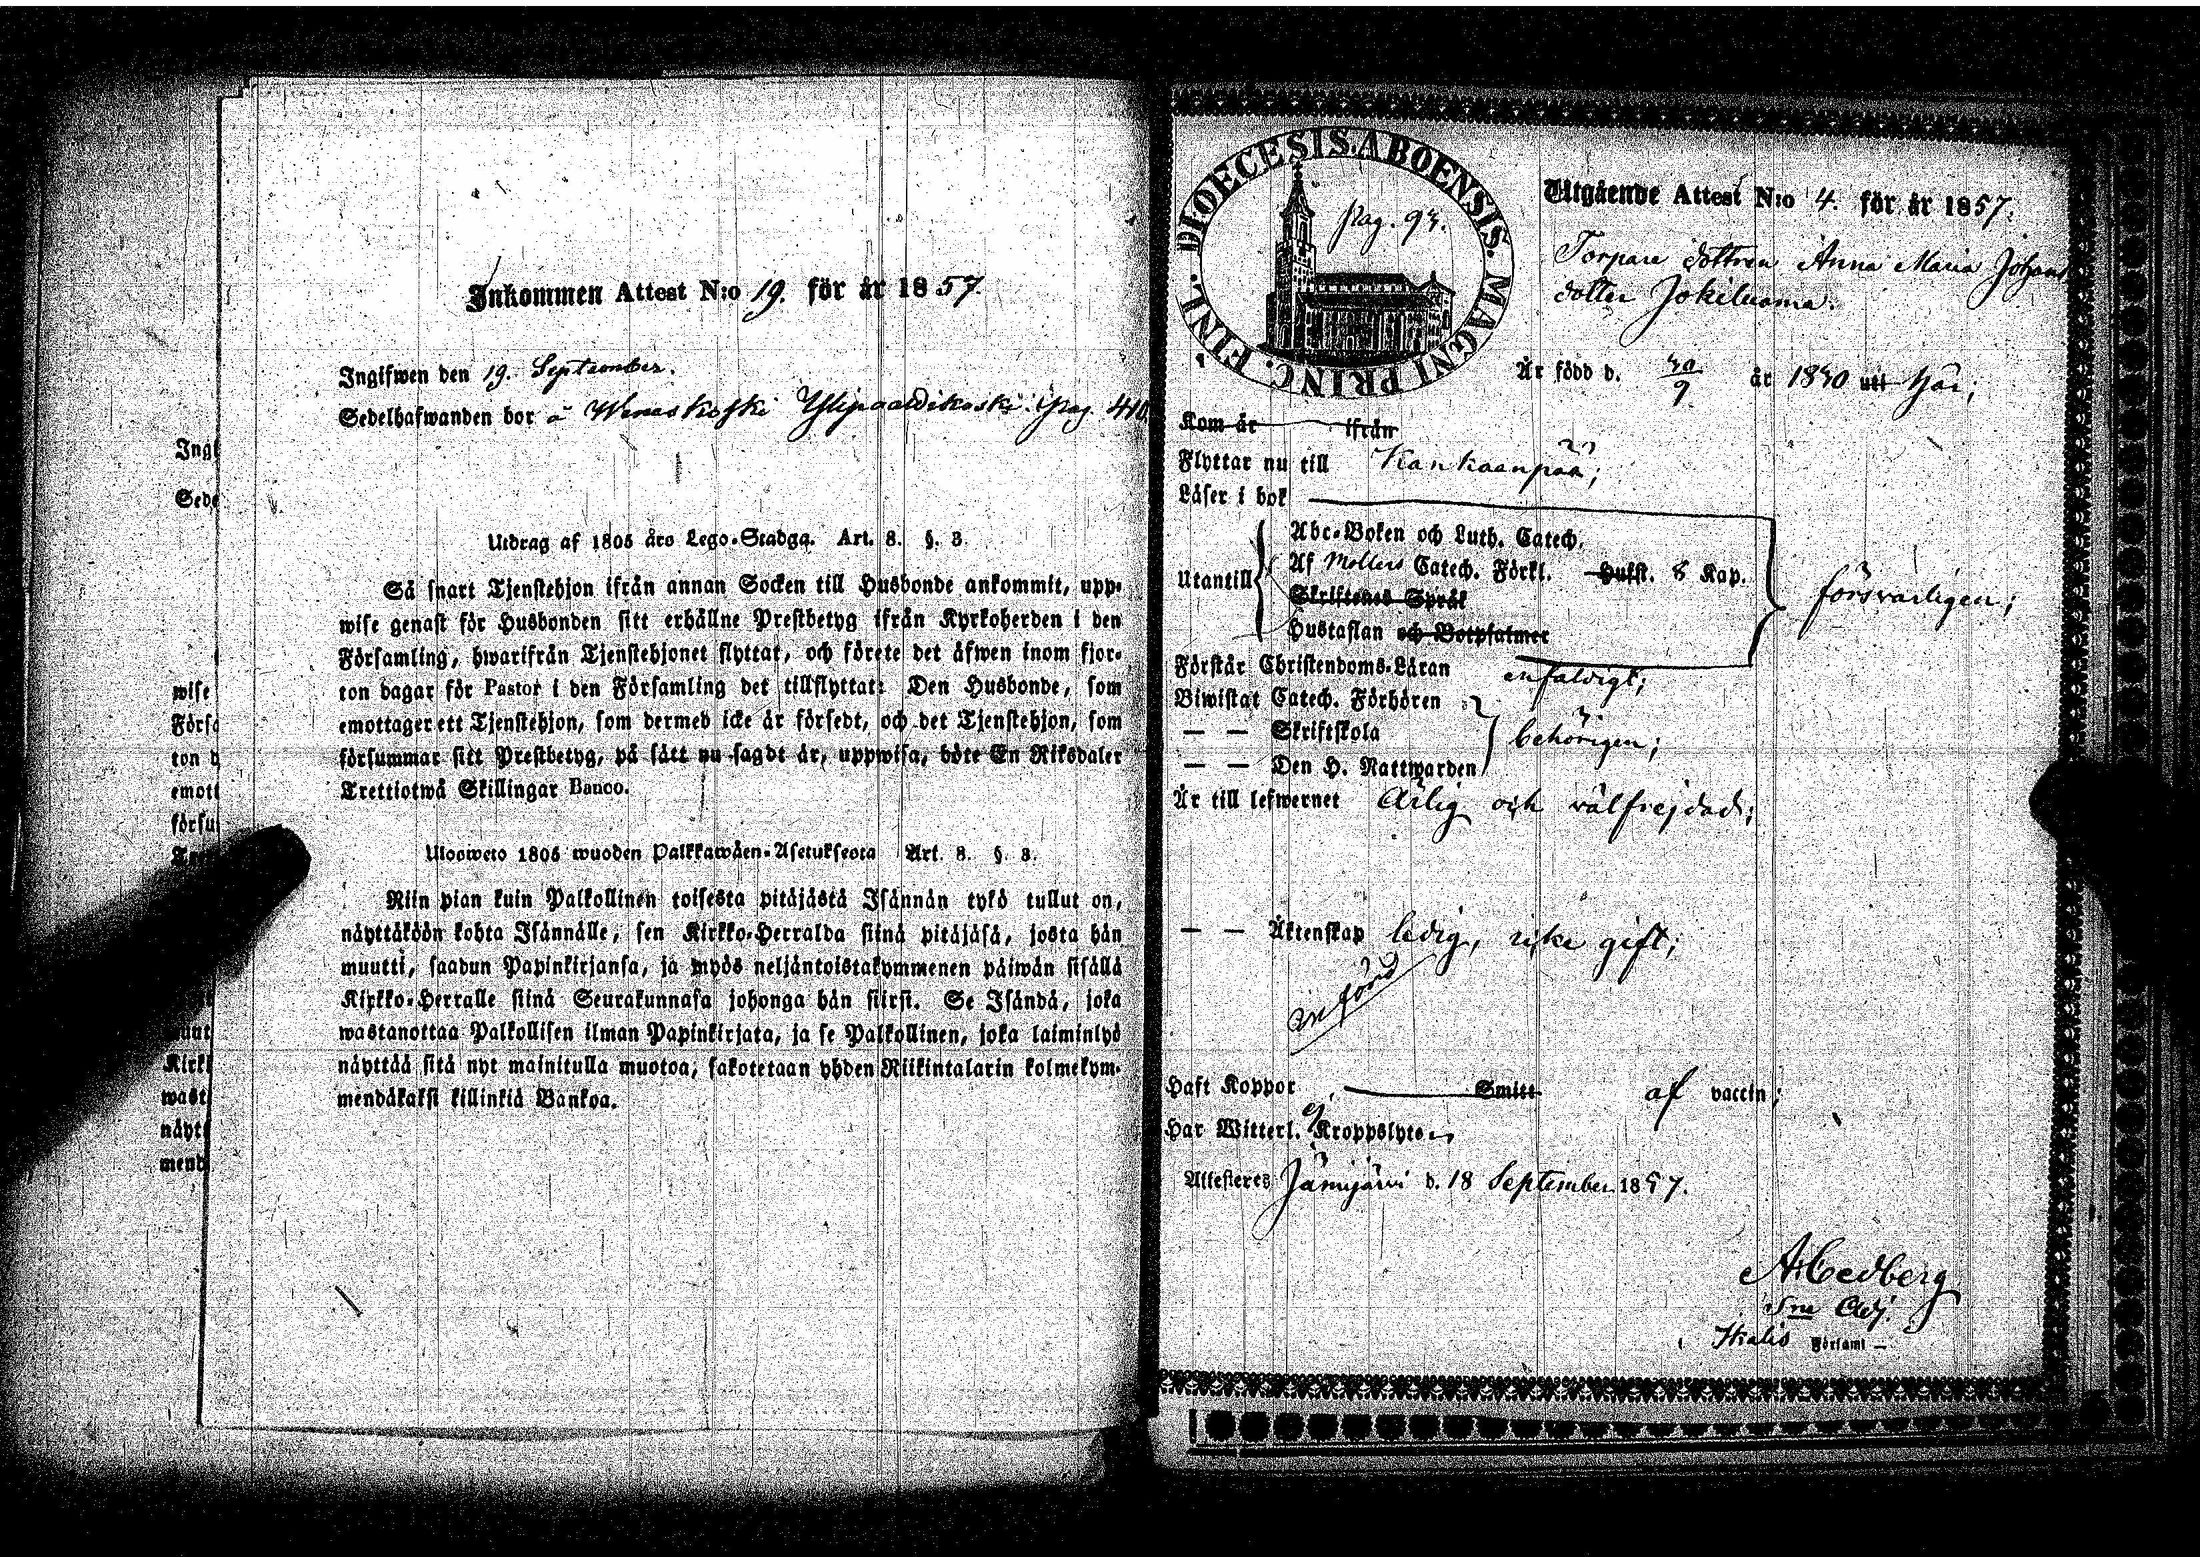 Inkommen Attest N:o 19. för år 1857.
Ingifwen den 19. September.
Sedelhafwanden bor å pag. 410
Utdrag af 1805 års Lego-Stadga. Art. 8. §. 3.
Så snart Tjenstehjon ifrån annan Socken till Husbonde ankommit, upp-
wise genast för Husbonden sitt erhållne Prestbetyg ifrån Kyrkoherden i den
Församling, hwarifrån Tjenstehjonet flyttat, och förete det äfwen inom fjor-
ton dagar för Pastor i den Församling det tillflyttat: Den Husbonde, som
emottager ett Tjenstehjon, som dermed icke är försedt, och det Tjenstehjon, som
försummar sitt Prestbetyg, på sätt nu sagdt är, uppwisa, böte En Riksdaler
Trettiotwå Skillingar Banco.
Ulosweto 1805 wuoden Palkkawäen-Asetuksesta Art. 8. §. 3.
Niin pian kuin Palkollinen toisesta pitäjästä Isännän tykö tullut on,
näyttäköön kohta Isännälle, sen Kirkko-Herralda siinä pitäjäsä, josta hän
muutti, saadun Papinkirjansa, ja myös neljäntoistakymmenen päiwän sisällä
Kirkko-Herralle siinä Seurakunnasa johonga hän siirsi. Se Isändä, joka
wastanottaa Palkollisen ilman Papinkirjata, ja se Palkollinen, joka laiminlyö
näyttää sitä nyt mainitulla muotoa, sakotetaan yhden Riikintalarin kolmekym-
mendäkaksi killinkiä Bankoa.
Ingi
Sede
wise
Förs
ton d
emott
försu
Kirk
wast
näyt
mend
DIOECESIS ABOENSIS. MAGNI PRINC. FINL.
pag. 93.
Utgående Attest N:o 4. för år 1857.
Torpare dottren Anna Maria Johans
dotter Jokiluoma.
Är född d. 30/9 år 1830 uti här;
Kom år ifrån
Flyttar nu till Kankaanpää;
Läser i bok
Utantill
Abc-Boken och Luth. Catech.
Af Möllers Catech. Förkl. Hufst. 8 Kap.
Skriftenes Språk
Hustaflan och Botpsalmer
försvarligen;
Förstår Christendoms-Läran enfaldigt;
Biwistat Catech. Förhören
— — Skriftskola
— — Den H. Nattwarden
behörigen;
Är till lefwernet Ärlig och välfrejdad;
— — Äktenskap ledig, icke gift;
anförd
Haft Koppor Smitt af vaccin;
Har Witterl. ej Kroppslyten
Attesteres Jämijärvi d. 18 September 1857.
A. Cedberg
Sne Adj.
i Ikalis Församl —